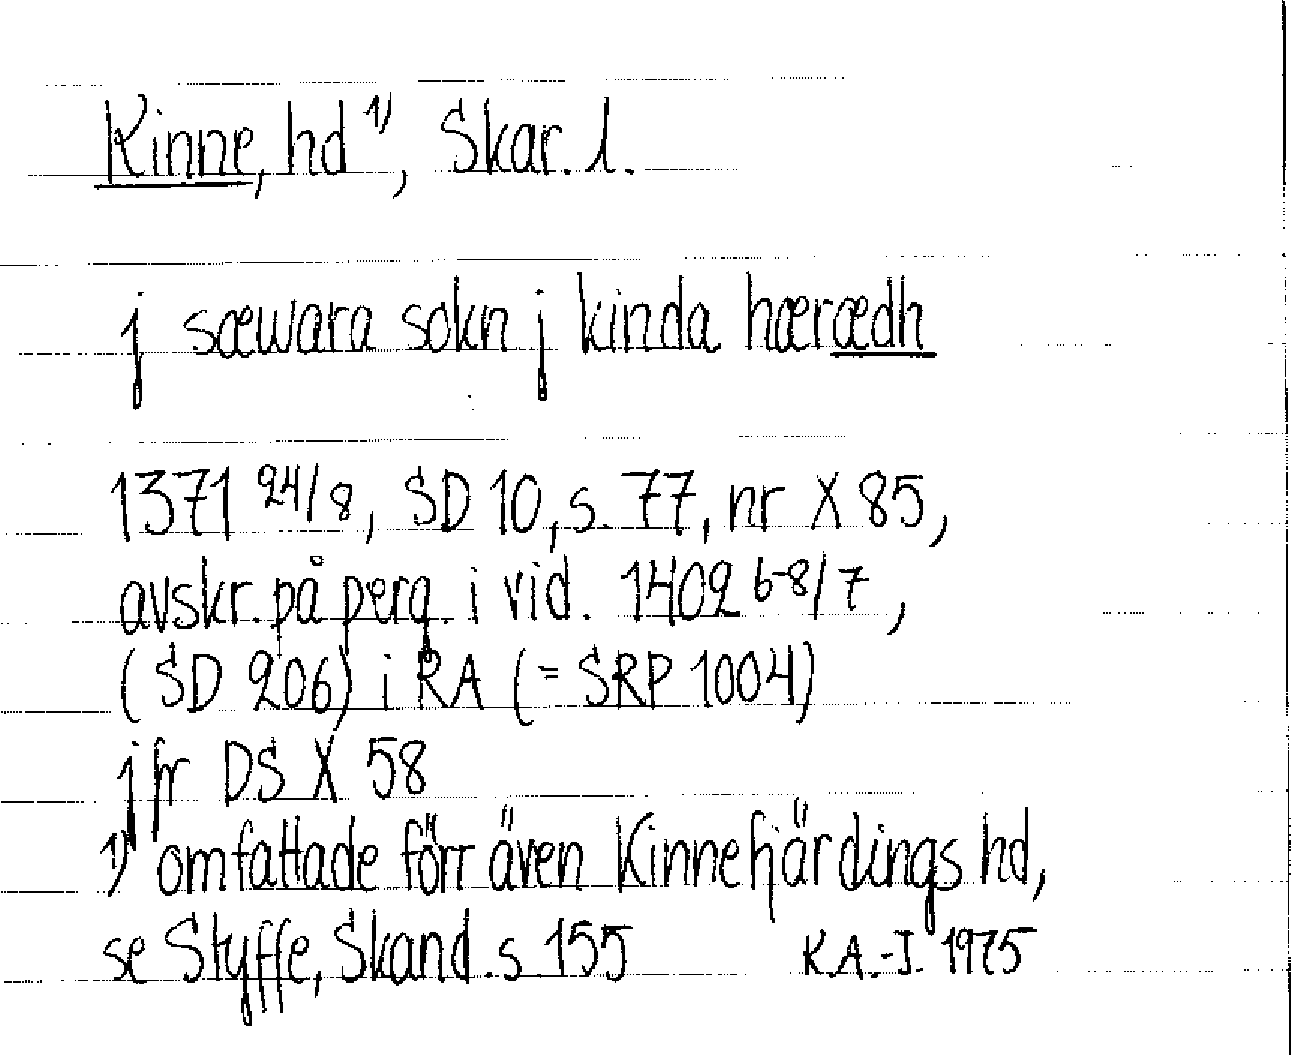 Kinne, hd ¹⁾, Skar. l.
j sæwara sokn j kinda hærædh
1371 24/8, SD 10, s. 77, nr X 85,
avskr. på perg. i vid. 1402 6-8/7,
(SD 206) i RA (= SRP 1004)
jfr DS X 58
¹⁾ omfattade förr även Kinnefjärdings hd,
se Styffe, Skand. s 155 K.A.-I. 1975